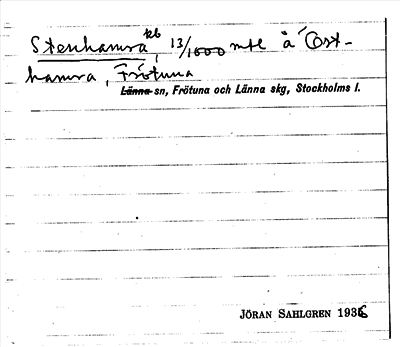 Stenhamra kb, 13/1600 mtl å Öst-
hamra, Frötuna
Länna sn, Frötuna och Länna skg, Stockholms l.
JÖRAN SAHLGREN 1936